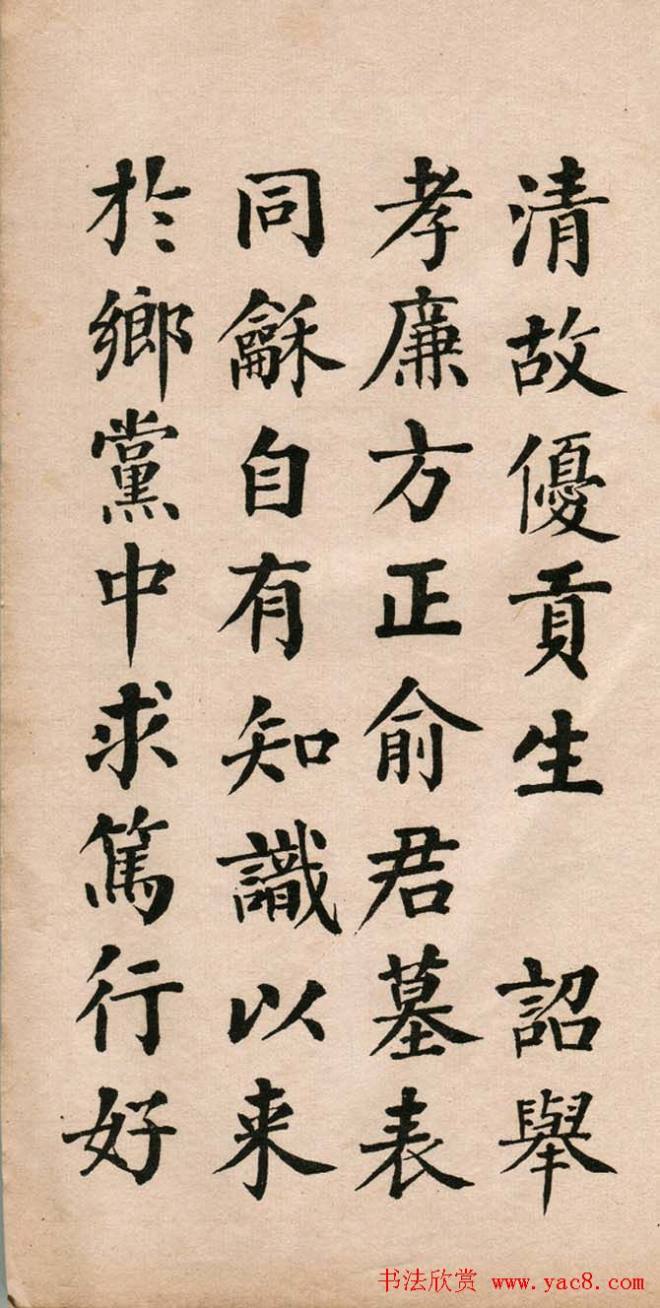 清故優貢生　詔舉
孝廉方正俞君墓表
同龢自有知識以来
於鄉黨中求篤行好
书法欣赏 www.yac8.com